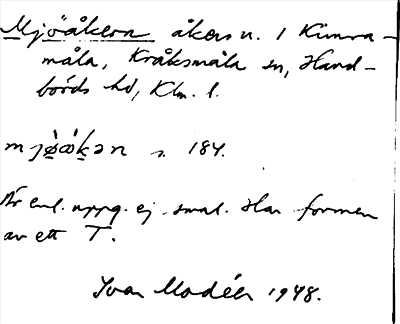 Mjöåkern åkern. i Kimra-
måla, Kråksmåla sn, Hand-
börds hd, Klm. l.
mjø̀ɷ̀kən s. 184.
Är enl. uppg. ej smal. Har formen
av ett T.
Ivar Modéer 1948.